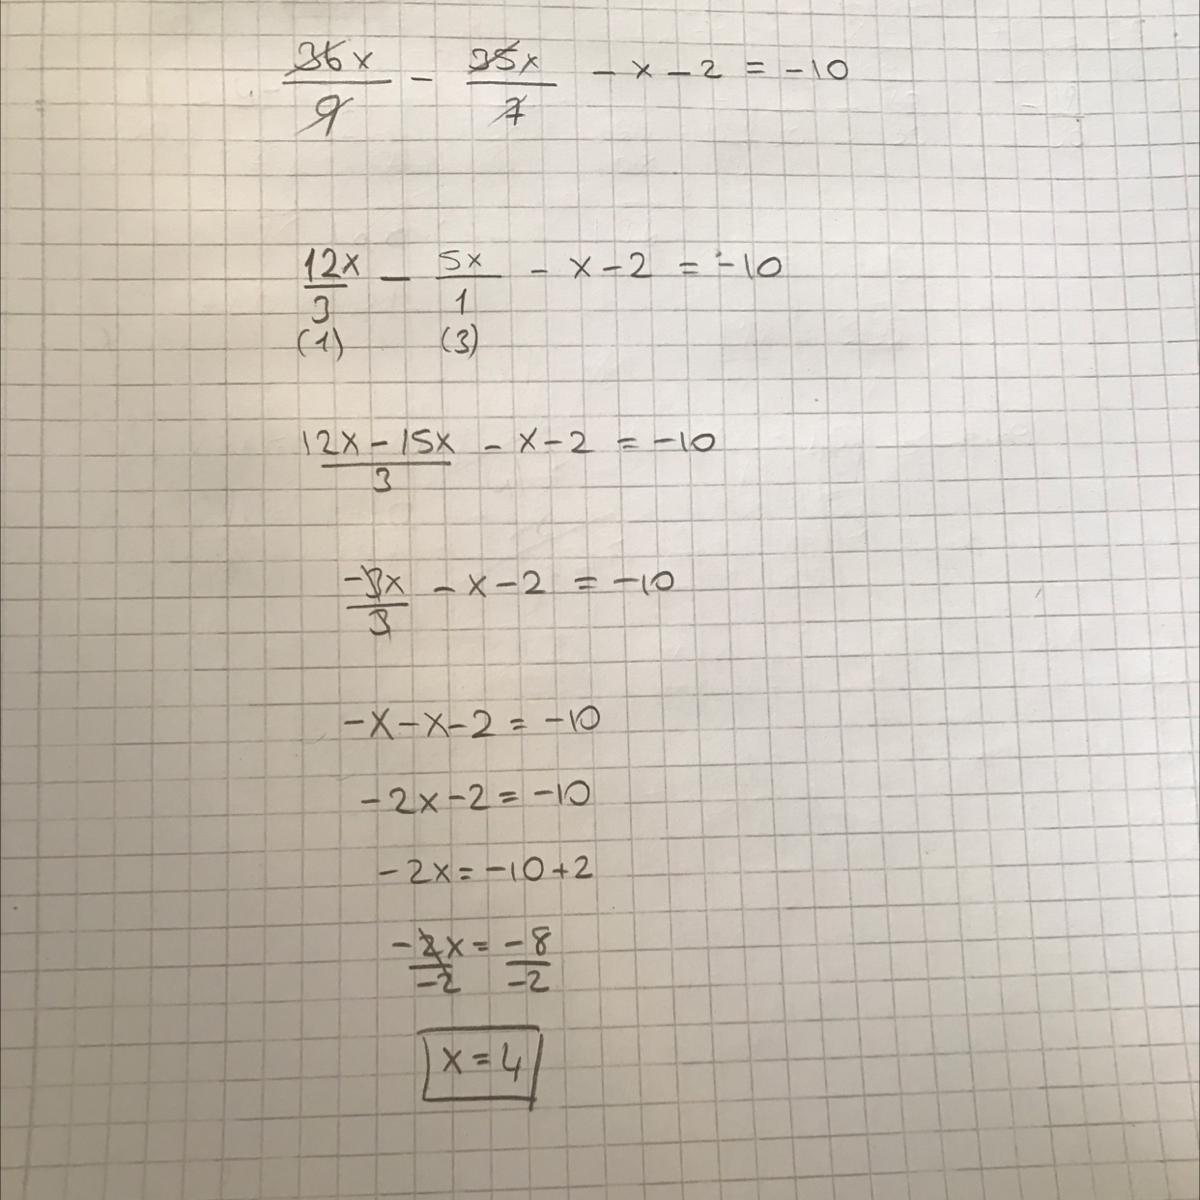 36x/9 - 35x/7 - x - 2 = -10
12x/3 - 5x/1 - x - 2 = -10
(1) (3)
12x - 15x/3 - x - 2 = -10
-3x/3 - x - 2 = -10
-x - x - 2 = -10
-2x - 2 = -10
-2x = -10 + 2
-2x/-2 = -8/-2
x = 4